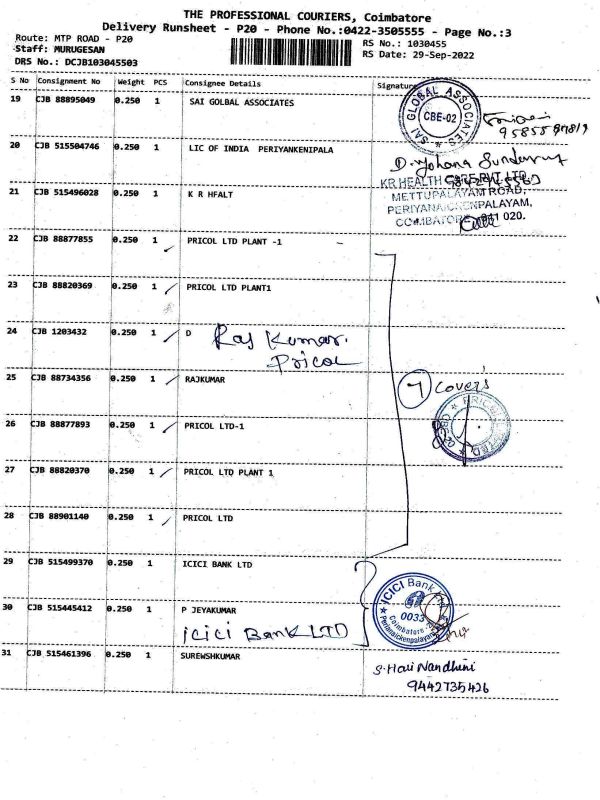 THE PROFESSIONAL COURIERS, Coimbatore
Delivery Runsheet - P20 - Phone No.:0422-3505555 - Page No.:3
Route: MTP ROAD - P20
RS No.: 1030455
Staff: MURUGESAN
RS Date: 29-Sep-2022
DRS No.: DCJB103045503
S No Consignment No Weight PCS Consignee Details Signature
19 CJB 88895049 0.250 1 SAI GOLBAL ASSOCIATES
SAI GLOBAL ASSOCIATES
CBE-02
20 CJB 515504746 0.250 1 LIC OF INDIA PERIYANKENIPALA
21 CJB 515496028 0.250 1 K R HFALT
KR HEALTH CARE PVT LTD
METTUPALAYAM ROAD,
PERIYANAICKENPALAYAM,
COIMBATORE - 641 020.
22 CJB 88877855 0.250 1 PRICOL LTD PLANT -1
23 CJB 88820369 0.250 1 PRICOL LTD PLANT1
24 CJB 1203432 0.250 1 D
Raj Kumar.
Pricol
25 CJB 88734356 0.250 1 RAJKUMAR
7 covers
26 CJB 88877893 0.250 1 PRICOL LTD-1
27 CJB 88820370 0.250 1 PRICOL LTD PLANT 1
28 CJB 88901140 0.250 1 PRICOL LTD
29 CJB 515499370 0.250 1 ICICI BANK LTD
ICICI Bank Ltd
0033
Coimbatore
Perianaickenpalayam
30 CJB 515445412 0.250 1 P JEYAKUMAR
icici Bank LTD
31 CJB 515461396 0.250 1 SUREWSHKUMAR
S. Hari Nandhini
9442735426